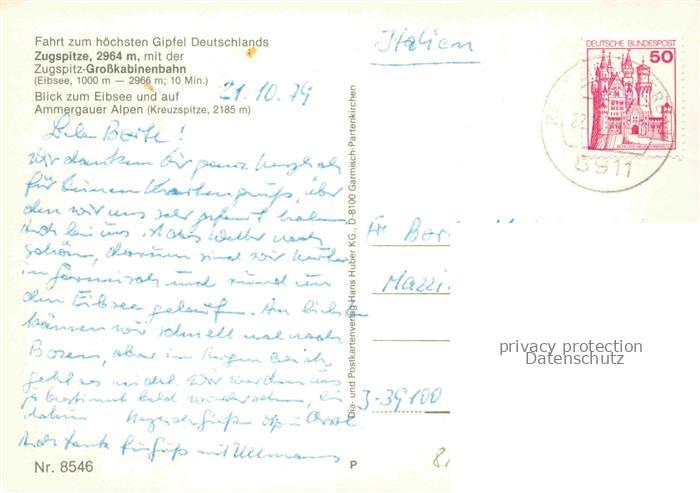 Fahrt zum höchsten Gipfel Deutschlands
Zugspitze, 2964 m, mit der
Zugspitz-Großkabinenbahn
(Eibsee, 1000 m — 2966 m; 10 Min.)
Blick zum Eibsee und auf
Ammergauer Alpen (Kreuzspitze, 2185 m)
21.10.79
Italien
DEUTSCHE BUNDESPOST
50
8911
!
wir danken Dir ganz herzlich
für Deinen Kartengruß, über
den wir uns sehr gefreut haben
Auch bei uns ist das Wetter noch
schön, darum sind wir heute
in Garmisch und rund um
den Eibsee gelauf. Am liebsten
kämen wir schnell mal nach
Bozen, aber im Augenblick
geht es nicht. Wir werden uns
ja bestimmt bald wiedersehen, bis
dahin
Dia- und Postkartenverlag Hans Huber KG., D-8100 Garmisch-Partenkirchen
Fr
I-39100
privacy protection
Datenschutz
Nr. 8546
P